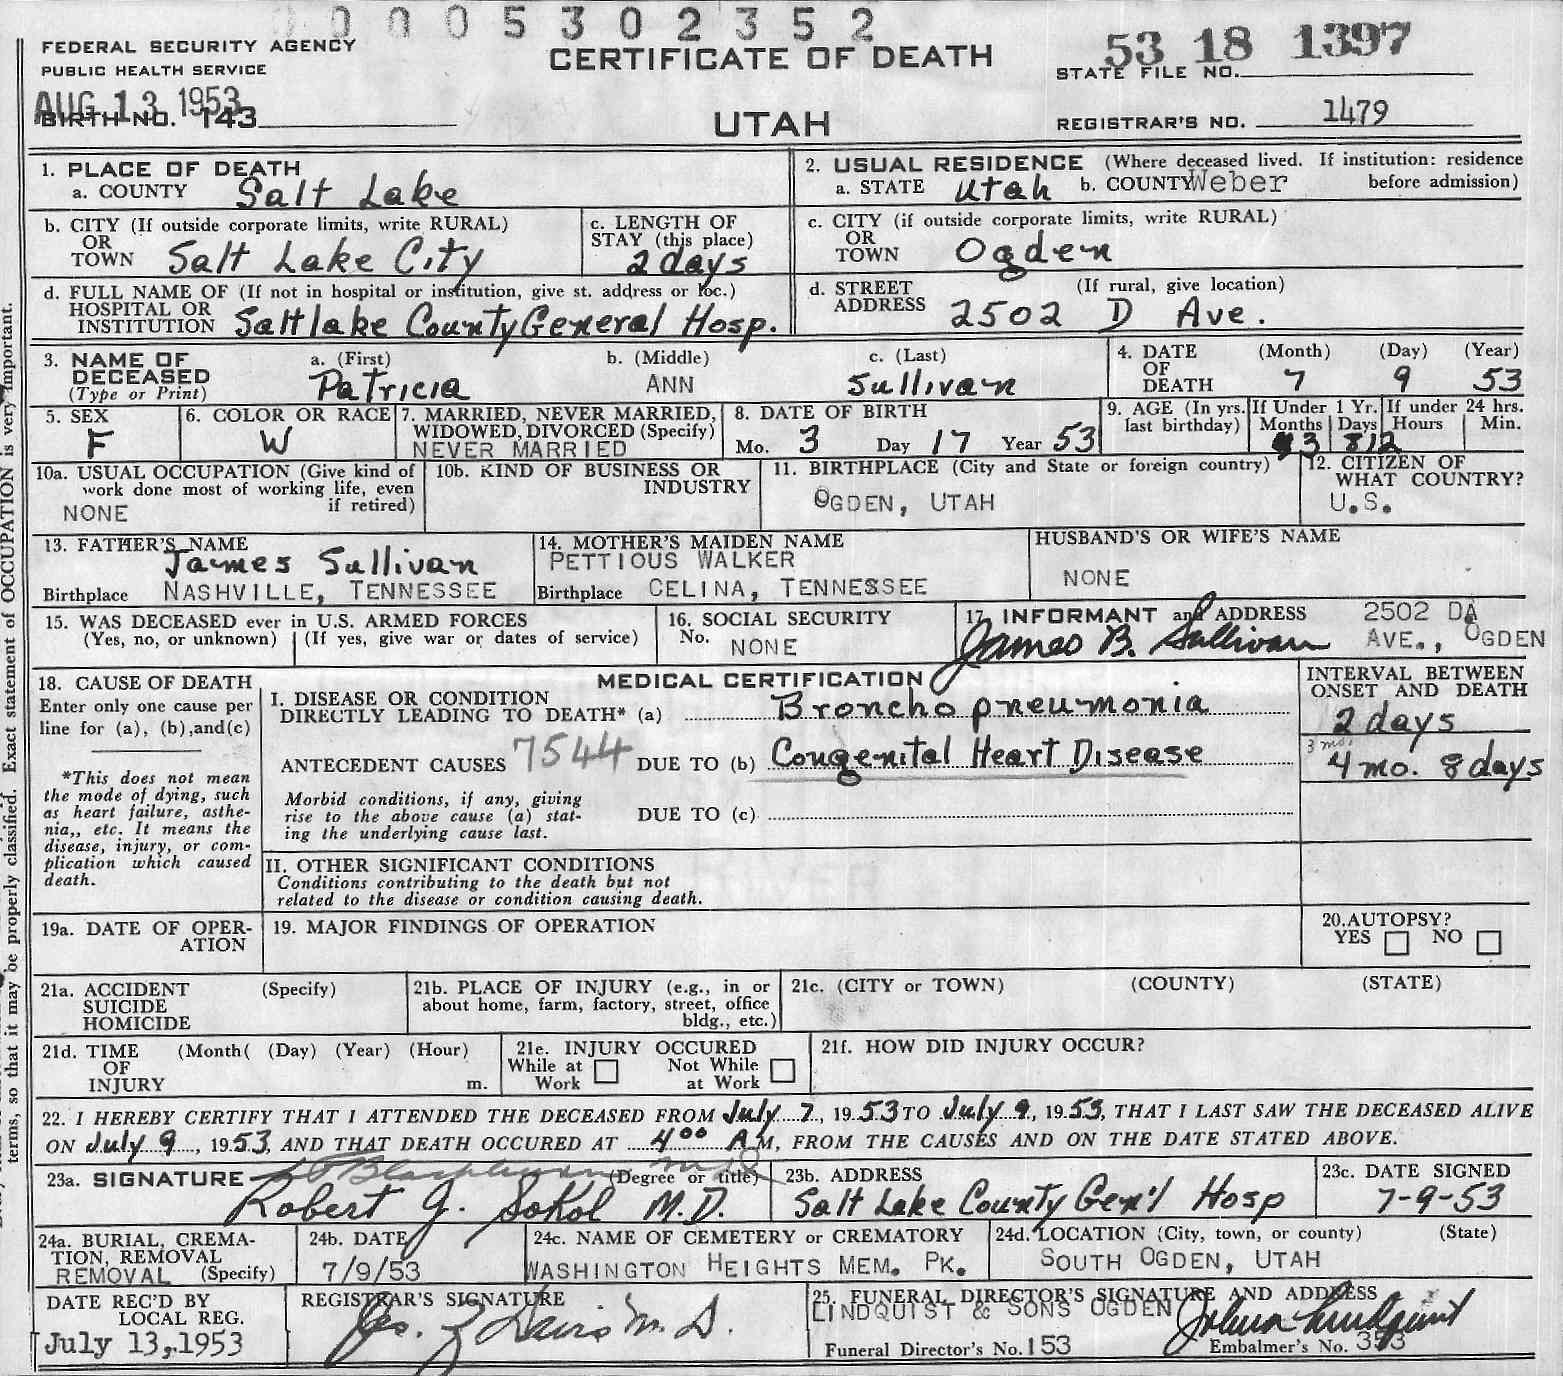 0 0 0 0 5 3 0 2 3 5 2
FEDERAL SECURITY AGENCY
PUBLIC HEALTH SERVICE
CERTIFICATE OF DEATH
53 18 1397
STATE FILE NO.
AUG 13 1953
BIRTH NO. 143
UTAH
REGISTRAR'S NO. 1479
1. PLACE OF DEATH
a. COUNTY Salt Lake
2. USUAL RESIDENCE (Where deceased lived. If institution: residence
a. STATE Utah b. COUNTY Weber before admission)
b. CITY (If outside corporate limits, write RURAL)
OR
TOWN Salt Lake City
c. LENGTH OF
STAY (this place)
2 days
c. CITY (if outside corporate limits, write RURAL)
OR
TOWN Ogden
d. FULL NAME OF (If not in hospital or institution, give st. address or loc.)
HOSPITAL OR
INSTITUTION Saltlake County General Hosp.
d. STREET (If rural, give location)
ADDRESS 2502 D Ave.
3. NAME OF
DECEASED
(Type or Print)
a. (First) b. (Middle) c. (Last)
Patricia ANN Sullivan
4. DATE OF DEATH
(Month) (Day) (Year)
7 9 53
5. SEX
F
6. COLOR OR RACE
W
7. MARRIED, NEVER MARRIED,
WIDOWED, DIVORCED (Specify)
NEVER MARRIED
8. DATE OF BIRTH
Mo. 3 Day 17 Year 53
9. AGE (In yrs.
last birthday)
If Under 1 Yr.
Months Days
3
If under 24 hrs.
Hours Min.
10a. USUAL OCCUPATION (Give kind of
work done most of working life, even
if retired)
NONE
10b. KIND OF BUSINESS OR
INDUSTRY
11. BIRTHPLACE (City and State or foreign country)
OGDEN, UTAH
12. CITIZEN OF
WHAT COUNTRY?
U.S.
13. FATHER'S NAME
James Sullivan
Birthplace NASHVILLE, TENNESSEE
14. MOTHER'S MAIDEN NAME
PETTIOUS WALKER
Birthplace CELINA, TENNESSEE
HUSBAND'S OR WIFE'S NAME
NONE
15. WAS DECEASED ever in U.S. ARMED FORCES
(Yes, no, or unknown) (If yes, give war or dates of service)
16. SOCIAL SECURITY
No. NONE
17. INFORMANT and ADDRESS 2502 DA
James B. Sullivan AVE., OGDEN
18. CAUSE OF DEATH
Enter only one cause per
line for (a), (b), and (c)
*This does not mean
the mode of dying, such
as heart failure, asthe-
nia,, etc. It means the
disease, injury, or com-
plication which caused
death.
MEDICAL CERTIFICATION
I. DISEASE OR CONDITION
DIRECTLY LEADING TO DEATH* (a) Bronchopneumonia
ANTECEDENT CAUSES 7544 DUE TO (b) Congenital Heart Disease
Morbid conditions, if any, giving
rise to the above cause (a) stat-
ing the underlying cause last.
DUE TO (c)
INTERVAL BETWEEN
ONSET AND DEATH
2 days
3 mo.
4 mo. 8 days
II. OTHER SIGNIFICANT CONDITIONS
Conditions contributing to the death but not
related to the disease or condition causing death.
19a. DATE OF OPER-
ATION
19. MAJOR FINDINGS OF OPERATION
20. AUTOPSY?
YES NO
21a. ACCIDENT (Specify)
SUICIDE
HOMICIDE
21b. PLACE OF INJURY (e.g., in or
about home, farm, factory, street, office
bldg., etc.)
21c. (CITY or TOWN) (COUNTY) (STATE)
21d. TIME (Month( (Day) (Year) (Hour)
OF
INJURY m.
21e. INJURY OCCURED
While at Work Not While at Work
21f. HOW DID INJURY OCCUR?
22. I HEREBY CERTIFY THAT I ATTENDED THE DECEASED FROM July 7, 1953 TO July 9, 1953, THAT I LAST SAW THE DECEASED ALIVE
ON July 9, 1953, AND THAT DEATH OCCURED AT 4 00 A.M, FROM THE CAUSES AND ON THE DATE STATED ABOVE.
23a. SIGNATURE (Degree or title)
Robert G. Sokol M.D.
23b. ADDRESS
Salt Lake County Gen'l Hosp
23c. DATE SIGNED
7-9-53
24a. BURIAL, CREMA-
TION, REMOVAL
REMOVAL (Specify)
24b. DATE
7/9/53
24c. NAME OF CEMETERY or CREMATORY
WASHINGTON HEIGHTS MEM. PK.
24d. LOCATION (City, town, or county) (State)
SOUTH OGDEN, UTAH
DATE REC'D BY
LOCAL REG.
July 13, 1953
REGISTRAR'S SIGNATURE
25. FUNERAL DIRECTOR'S SIGNATURE AND ADDRESS
LINDQUIST & SONS OGDEN
Funeral Director's No. 153 Embalmer's No. 353
terms, so that it may be properly classified. Exact statement of OCCUPATION is very important.